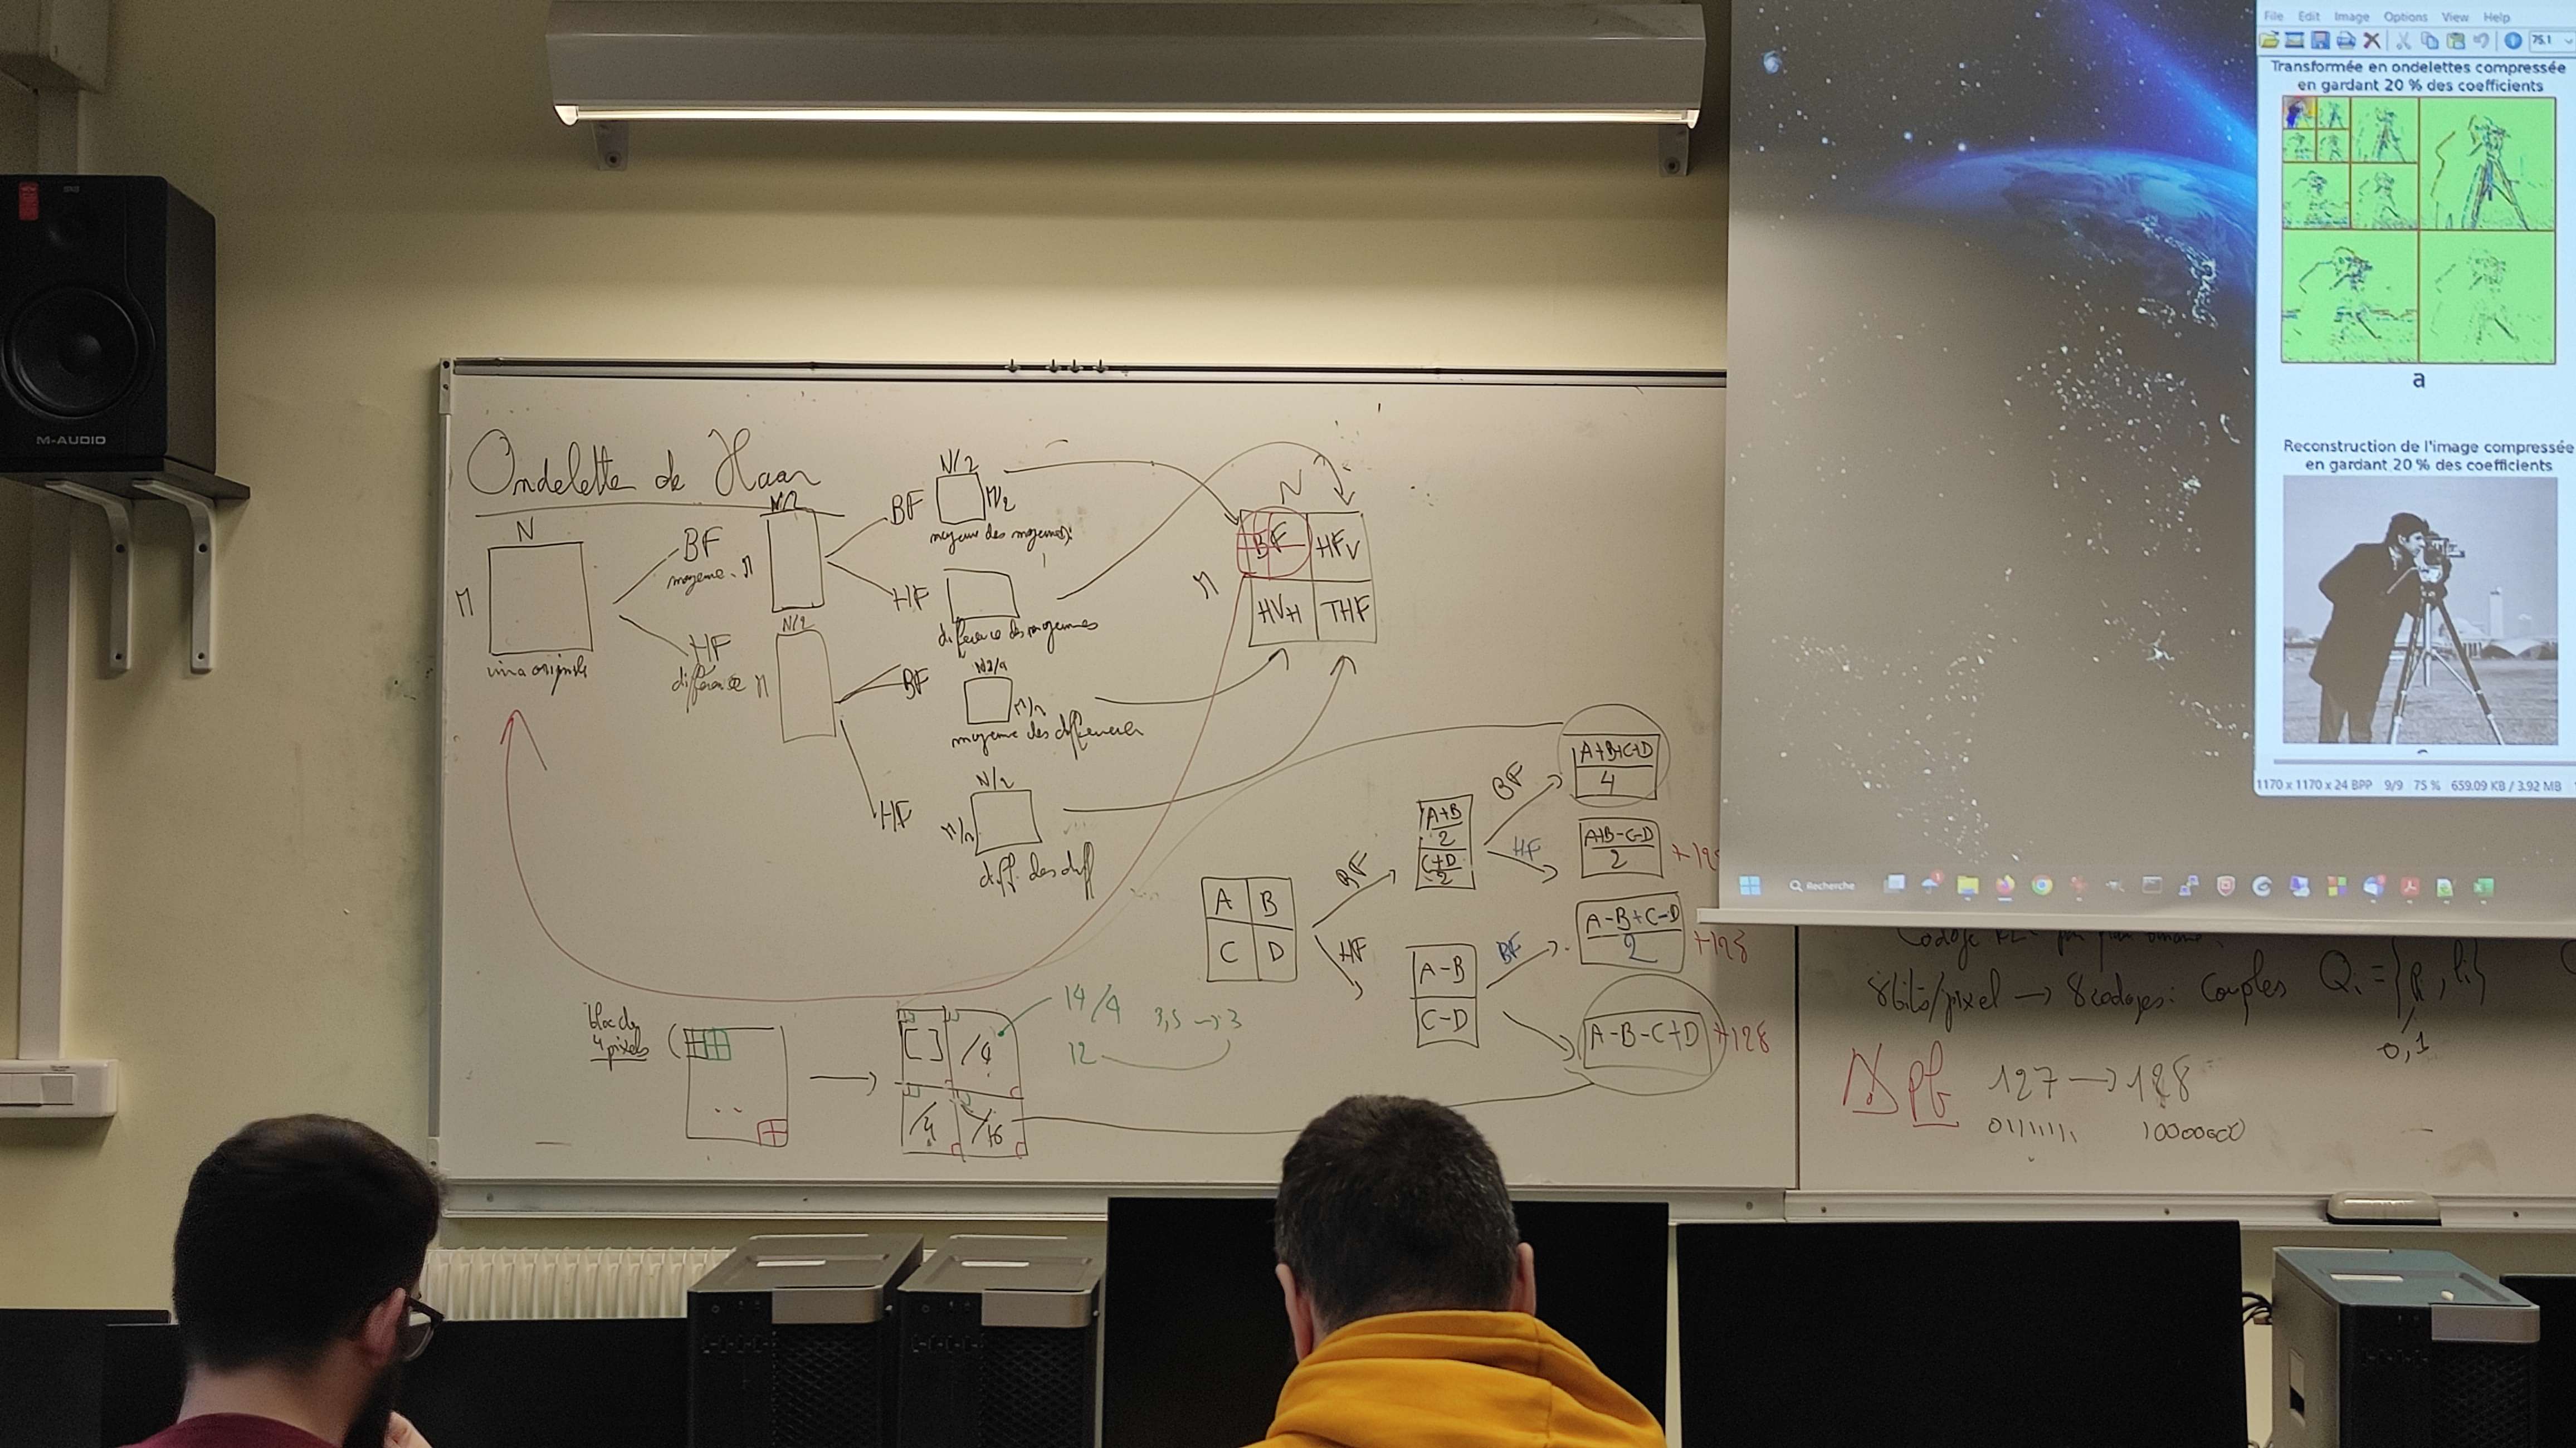 M-AUDIO
Ondelette de Haar
N
M
BF
moyenne
M
N/2
HF
différence
M
N/2
BF
N/2
M/2
moyenne des moyennes
HF
différence des moyennes
BF
moyenne des différences
HF
N/2
diff. des diff
N
M
BF
HFV
HVH
THF
A B
C D
BF
A+B
2
C+D
2
HF
A-B
C-D
BF
A+B+C+D
4
HF
A+B-C-D
2
BF
A-B+C-D
2
+128
A-B-C+D
+128
bloc de
4 pixels
[ ]
/4
/4
/16
14/4
3,5 → 3
12
8bits/pixel → 8 codages: Couples Qi = {
0,1
pb 127 → 128
01111111 10000000
File Edit Image Options View Help
75.1
Transformée en ondelettes compressée
en gardant 20 % des coefficients
a
Reconstruction de l'image compressée
en gardant 20 % des coefficients
1170 x 1170 x 24 BPP 9/9 75 % 659.09 KB / 3.92 MB
Recherche